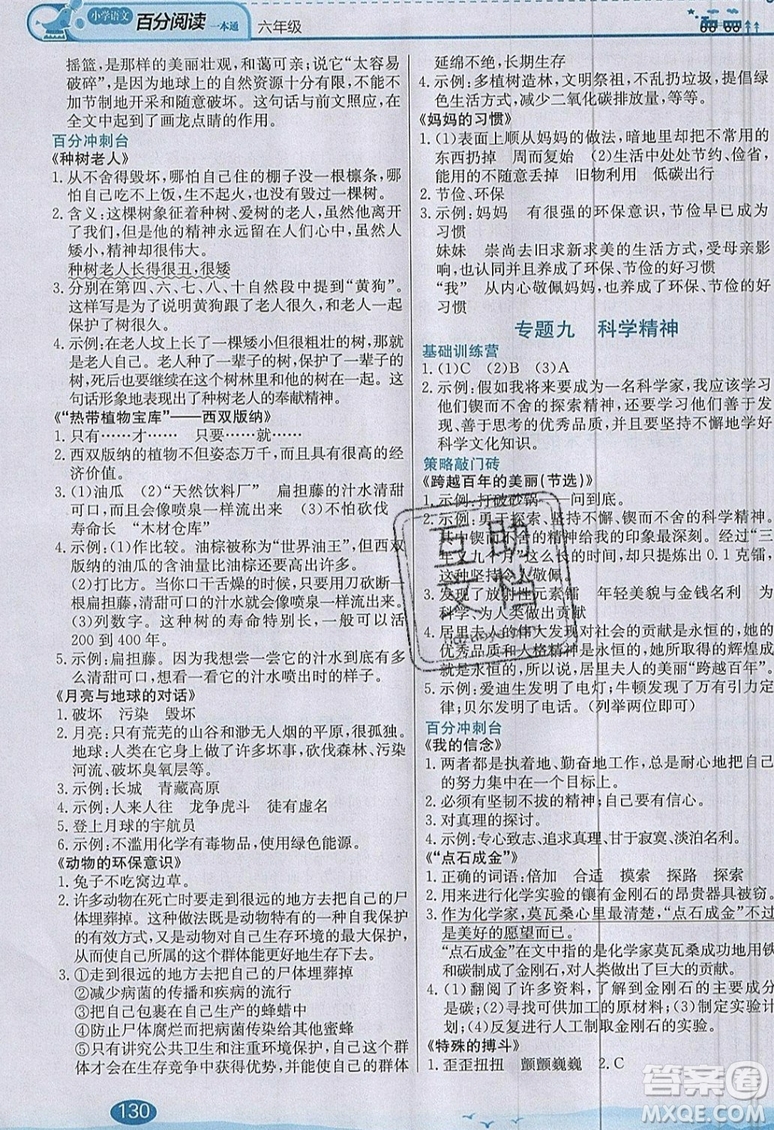 小学语文 百分阅读 一本通 六年级
摇篮,是那样的美丽壮观,和蔼可亲;说它“太容易
破碎”,是因为地球上的自然资源十分有限,不能不
加节制地开采和随意破坏。这句话与前文照应,在
全文中起到了画龙点睛的作用。
百分冲刺台
《种树老人》
1. 从不舍得毁树,以致自己住的棚子没一根檩条,
吃了树他心疼,
吃不上饭,生不起火,也没有卖过一棵树。
2. 含义:这棵树象征着种树、爱树的老人,虽然离开
了我们,但是他的精神永远留在人们心中,虽然人
矮小,精神却很伟大。
种树老人长得很丑,很矮
3. 分别在第四、六、七、八、十自然段中提到“黄狗”。
这样写是为了说明黄狗跟了老人很久,和老人一起
保护了树很久。
4. 示例:在老人坟上长了一棵矮小但很粗壮的老树,就
是老人的化身,老人种了一辈子的树,保护了一辈子的
树,死后还要化身老树在树林里看护着其他树,这句
话形象地表现了老人的奉献精神。
《“热带植物宝库”——西双版纳》
1. 只有……才…… 只要……就……
2. 西双版纳的植物不但姿态万千,而且具有很高的经
济价值。
3. (1)油瓜 (2)“天然饮料厂” 扁担藤的汁水清甜
可口,而且像喷泉一样流出来 (3)不怕砍伐
寿命长 “木材仓库”
4. 示例:(1)作比较。油棕被称为“世界油王”,但西双
版纳的油瓜含油量比油棕还要高出许多。
(2)打比方。当你口干舌燥的时候,只要用刀砍断一
根扁担藤,清甜可口的汁水就会像喷泉一样流出来。
(3)列数字。这种树的寿命特别长,可以生长
200到400年。
5. 示例:扁担藤。当我看到书中描述扁担藤的汁水
清甜可口时,想看一看它的汁水到底是怎样的。
《月亮与地球的对话》
1. 破坏 污染 毁坏
2. 月亮:只有荒芜的山谷和渺无人烟的平原,很孤独。
地球:人类在这里做了许多坏事,砍伐森林、污染
河流、破坏臭氧层等。
3. 示例:长城 青藏高原
4. 示例:人来人往 龙争虎斗 徒有虚名
5. 登上月球的宇航员
6. 示例:不滥用化学有毒物品,使用绿色能源。
《动物的环保意识》
1. 兔子不吃窝边草。
2. 许多动物都要走到很远的地方去把自己的尸
体埋葬掉。这种做法既是动物有保持自我保护的
行为,也是动物对自己生存环境的最大保护,从而
使自己的群体能够更好地生存下去。
3. ①走到很远的地方去把自己的尸体埋葬掉
②减少病菌的传播和疾病的流行
③把自己包裹在自己生产的蜂蜡中
④防止尸体腐败后感染其他蜜蜂
⑤只有讲究公共卫生和注重环境保护,自己这个群
体才能在自然界生存下去,自己这个群体才能够
延绵不绝,长期生存
4. 示例:多植树造林,文明祭祖,不乱扔垃圾,提倡绿
色生活方式,减少二氧化碳排放量,等等。
《妈妈的习惯》
1. (1)表面上顺从妈妈的做法,暗地里却将要丢的
东西扔掉 (2)生活中处处节约、俭省,
能用的不随意丢弃 旧物利用 低碳出行
2. 节俭、环保
3. 示例:妈妈 有很强的环保意识,节俭早已成为
习惯
妹妹 崇尚去旧求新求美的生活方式,受母亲影
响,也养成了环保、节俭的好习惯
“我” 从内心敬佩妈妈,也养成了环保、节俭的
好习惯
专题九 科学精神
基础训练营
1. (1)C (2)B (3)A
2. 示例:假如我将来要成为一名科学家,我应该学习
他们锲而不舍的探索精神,还要学习他们坚持不
懈、善于思考的优秀品质,并且从现在开始努力学好
科学文化知识。
策略敲门砖
《跨越百年的美丽(节选)》
1. 示例:打破砂锅——问到底。
2. 示例:勇于探索、坚持不懈、锲而不舍的科学精神。
锲而不舍的精神给我的印象最深刻。经过“三
年又九个月”,从成吨的矿渣中提炼出了0.1克镭,
这种坚持令人敬佩。
3. 发现了放射性元素镭 年轻美貌与金钱名利 为
科学、为人类做出贡献
4. 居里夫人的伟大发现对社会的贡献是永恒的,她的
优秀品质和人格精神是永恒的,她所取得的辉煌成
就是永恒的,所以说,居里夫人的美丽“跨越百年”。
5. 示例:爱迪生发明了电灯;牛顿发现了万有引力定
律;贝尔发明了电话。(列举两位即可)
百分冲刺台
《我的信念》
1. 两者都是执着地、勤奋地工作,总是耐心地把自己
的努力集中在一个目标上。
2. 必须有坚韧不拔的精神;要有信心。
3. 对真理的探讨。
4. 示例:专心致志、追求真理、甘于寂寞、淡泊名利。
《“点石成金”》
1. 正确的词语:倍加 合适 摸索 探路 探索
2. 用来进行化学实验的镶有金刚石的昂贵器具被窃。
3. 作为化学家,莫瓦桑心里最清楚,“点石成金”不过
是美好的愿望而已。
“点石成金”在文中指的是化学家莫瓦桑成功地用铁
和碳合成了金刚石,为人类做出了巨大的贡献。
4. (1)翻阅了许多资料,了解到金刚石的主要成分是
碳;(2)寻找可供加工的原材料;(3)制定实验计
划;(4)反复进行人工制取金刚石的实验。
《特殊的搏斗》
1. 歪歪扭扭 颤颤巍巍 2. C
130
答案圈
MXQE.COM